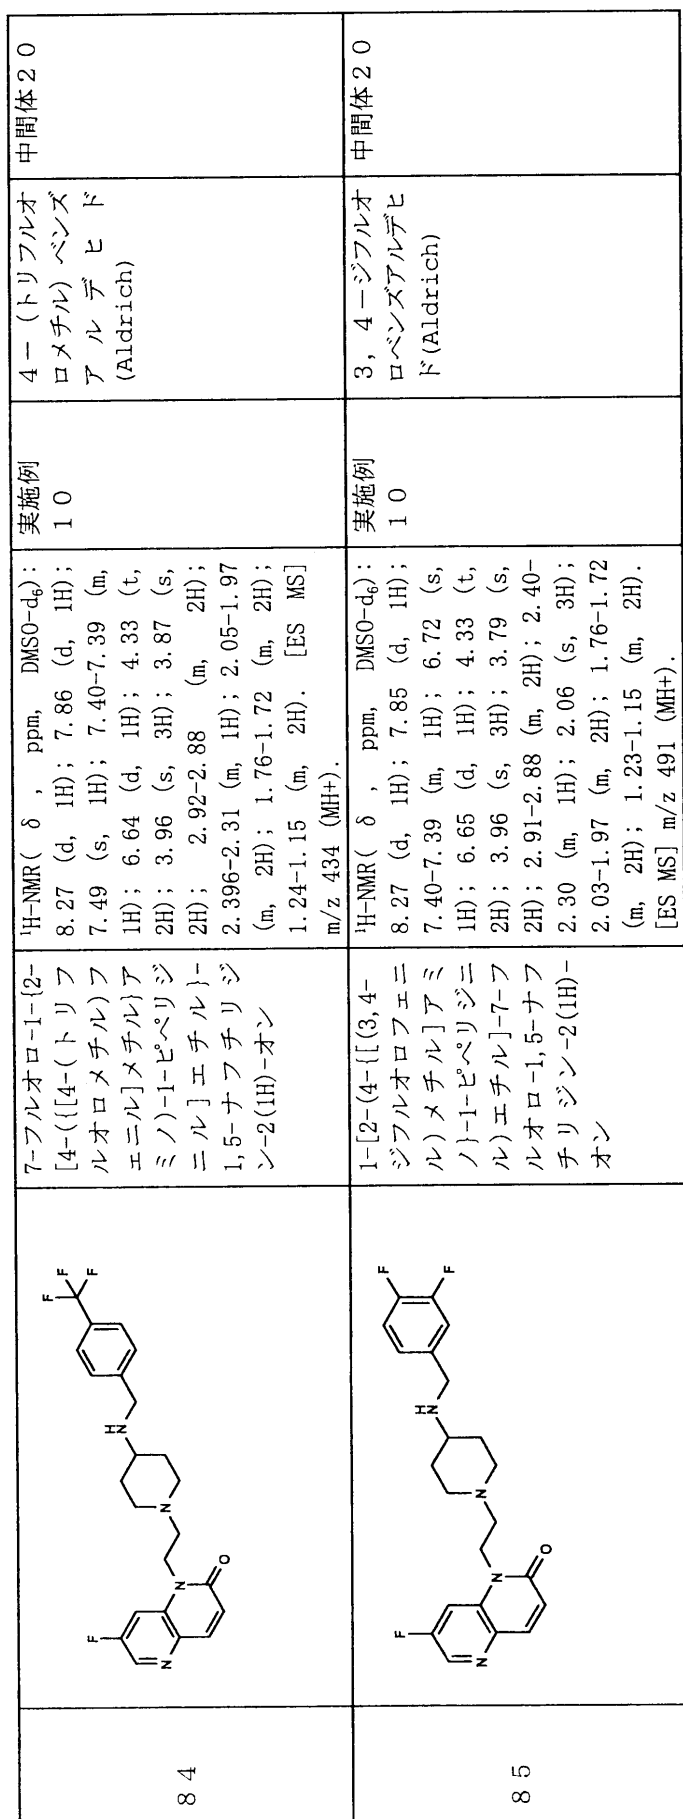 84
7-フルオロ-1-{2-
[4-({[4-(トリフ
ルオロメチル)フ
ェニル]メチル}ア
ミノ)-1-ピペリジ
ニル]エチル}-
1,5-ナフチリジ
ン-2(1H)-オン
¹H-NMR( δ , ppm, DMSO-d₆):
8.27 (d, 1H); 7.86 (d, 1H);
7.49 (s, 1H); 7.40-7.39 (m,
1H); 6.64 (d, 1H); 4.33 (t,
2H); 3.96 (s, 3H); 3.87 (s,
2H); 2.92-2.88 (m, 2H);
2.396-2.31 (m, 1H); 2.05-1.97
(m, 2H); 1.76-1.72 (m, 2H);
1.24-1.15 (m, 2H). [ES MS]
m/z 434 (MH+).
実施例
10
4-(トリフルオ
ロメチル)ベンズ
アルデヒド
(Aldrich)
中間体20
F
N
N
O
N
HN
F
F
F
85
1-[2-(4-{[(3,4-
ジフルオロフェニ
ル)メチル]アミ
ノ}-1-ピペリジニ
ル)エチル]-7-フ
ルオロ-1,5-ナフ
チリジン-2(1H)-
オン
¹H-NMR( δ , ppm, DMSO-d₆):
8.27 (d, 1H); 7.85 (d, 1H);
7.40-7.39 (m, 1H); 6.72 (s,
1H); 6.65 (d, 1H); 4.33 (t,
2H); 3.96 (s, 3H); 3.79 (s,
2H); 2.91-2.88 (m, 2H); 2.40-
2.30 (m, 1H); 2.06 (s, 3H);
2.03-1.97 (m, 2H); 1.76-1.72
(m, 2H); 1.23-1.15 (m, 2H).
[ES MS] m/z 491 (MH+).
実施例
10
3,4-ジフルオ
ロベンズアルデヒ
ド(Aldrich)
中間体20
F
N
N
O
N
HN
F
F